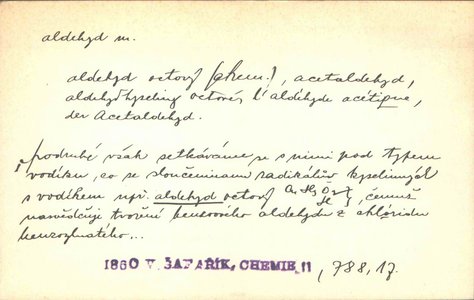 aldehyd m.
aldehyd octový (chem.), acetaldehyd,
aldehyd kyseliny octové, l'aldéhyde acétique,
der Acetaldehyd.
„podruhé však setkáváme se s nimi pod typem
vodíku, co se sloučeninami radikálův kyselinných
s vodíkem np. aldehyd octový čemuž
nasvědčuje tvoření benzového aldehydu z chlóridu
benzoylnatého...
1860 V. ŠAFAŘÍK, CHEMIE II, 788, 17.